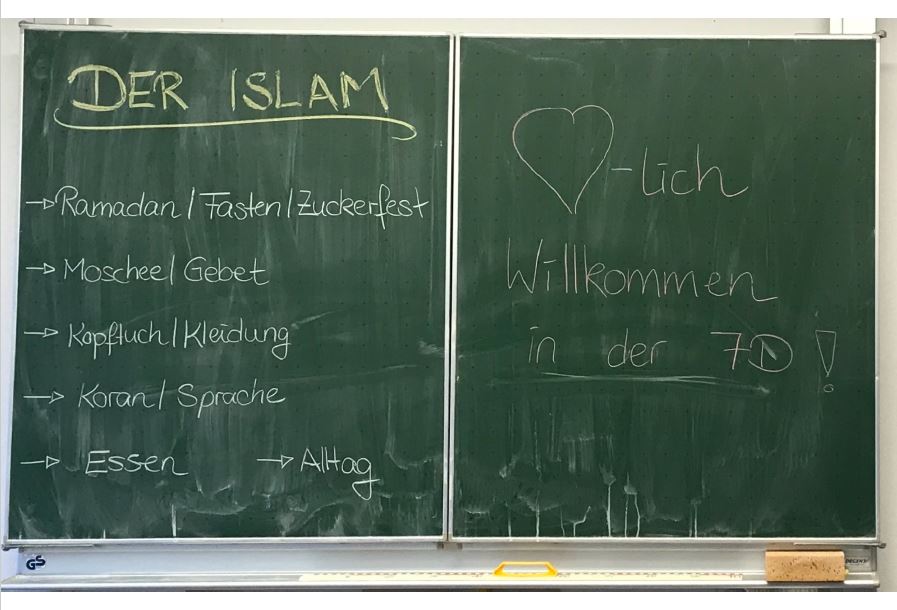 DER ISLAM
→ Ramadan / Fasten / Zuckerfest
→ Moschee / Gebet
→ Kopftuch / Kleidung
→ Koran / Sprache
→ Essen → Alltag
♡-lich
Willkommen
in der 7D!
GS